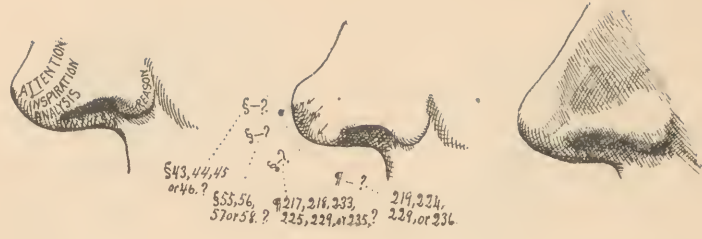 ATTENTION
INSPIRATION
ANALYSIS
§—?
§—?
§?
¶—?
§43,44,45
or 46.?
§55,56,
57 or 58.?
¶217,218,233,
225,229, or 235,?
219,224,
229, or 236.